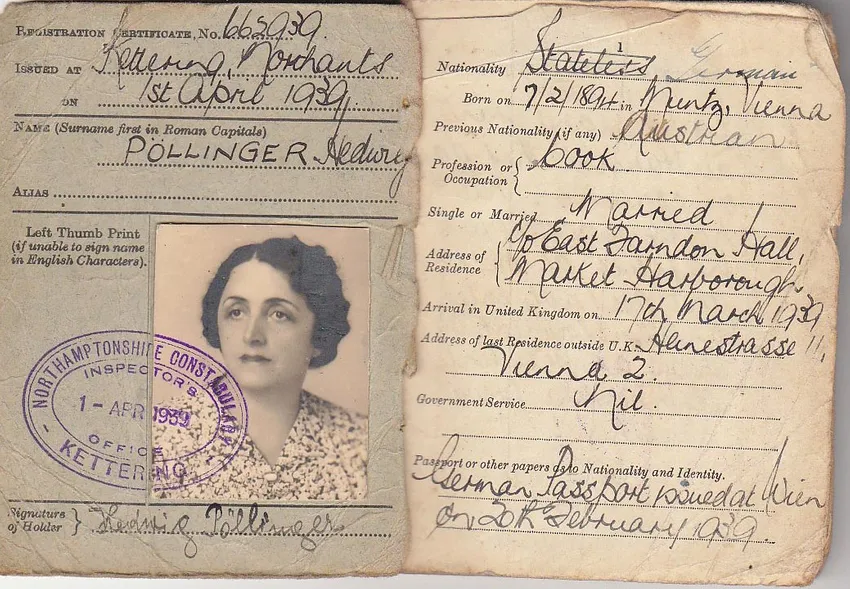 REGISTRATION CERTIFICATE, No. 665939.
ISSUED AT Kettering, Northants
ON 1st April 1939.
NAME (Surname first in Roman Capitals)
PÖLLINGER Hedwig
ALIAS
Left Thumb Print
(if unable to sign name
in English Characters).
NORTHAMPTONSHIRE CONSTABULARY
INSPECTOR'S
1 - APR 1939
OFFICE
KETTERING
Signature
of Holder } Hedwig Pöllinger
1
Nationality Stateless German
Born on 7/2/1894 in Muntz, Vienna
Previous Nationality (if any) Austrian
Profession or
Occupation } Cook
Single or Married Married
Address of
Residence { c/o East Farndon Hall,
Market Harborough.
Arrival in United Kingdom on 17th March 1939
Address of last Residence outside U.K. Heinestrasse 11,
Vienna 2.
Government Service Nil.
Passport or other papers as to Nationality and Identity.
German Passport issued at Wien
on 20th February 1939.